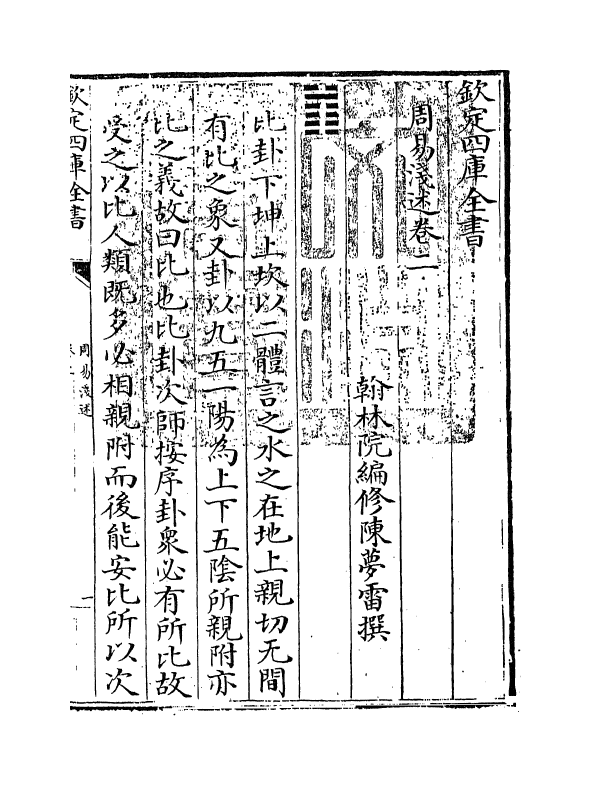 欽定四庫全書
周易淺述卷二
翰林院編修陳夢雷撰
比卦下坤上坎以二體言之水之在地上親切无間
有比之象又卦以九五一陽為上下五陰所親附亦
比之義故曰比也比卦次師按序卦衆必有所比故
受之以比人類既多必相親附而後能安比所以次
欽定四庫全書
周易淺述
一